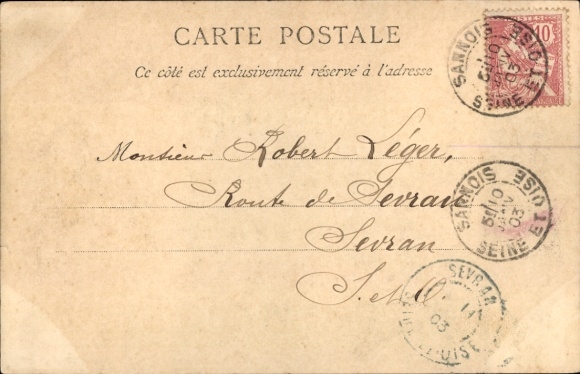 CARTE POSTALE
Ce côté est exclusivement réservé à l'adresse
POSTES
10
SANNOIS
SEINE ET OISE
03
Monsieur Robert Léger,
Route de Sevran
Sevran
S. et O.
SANNOIS
10
03
SEINE ET OISE
SEVRAN
03
OISE